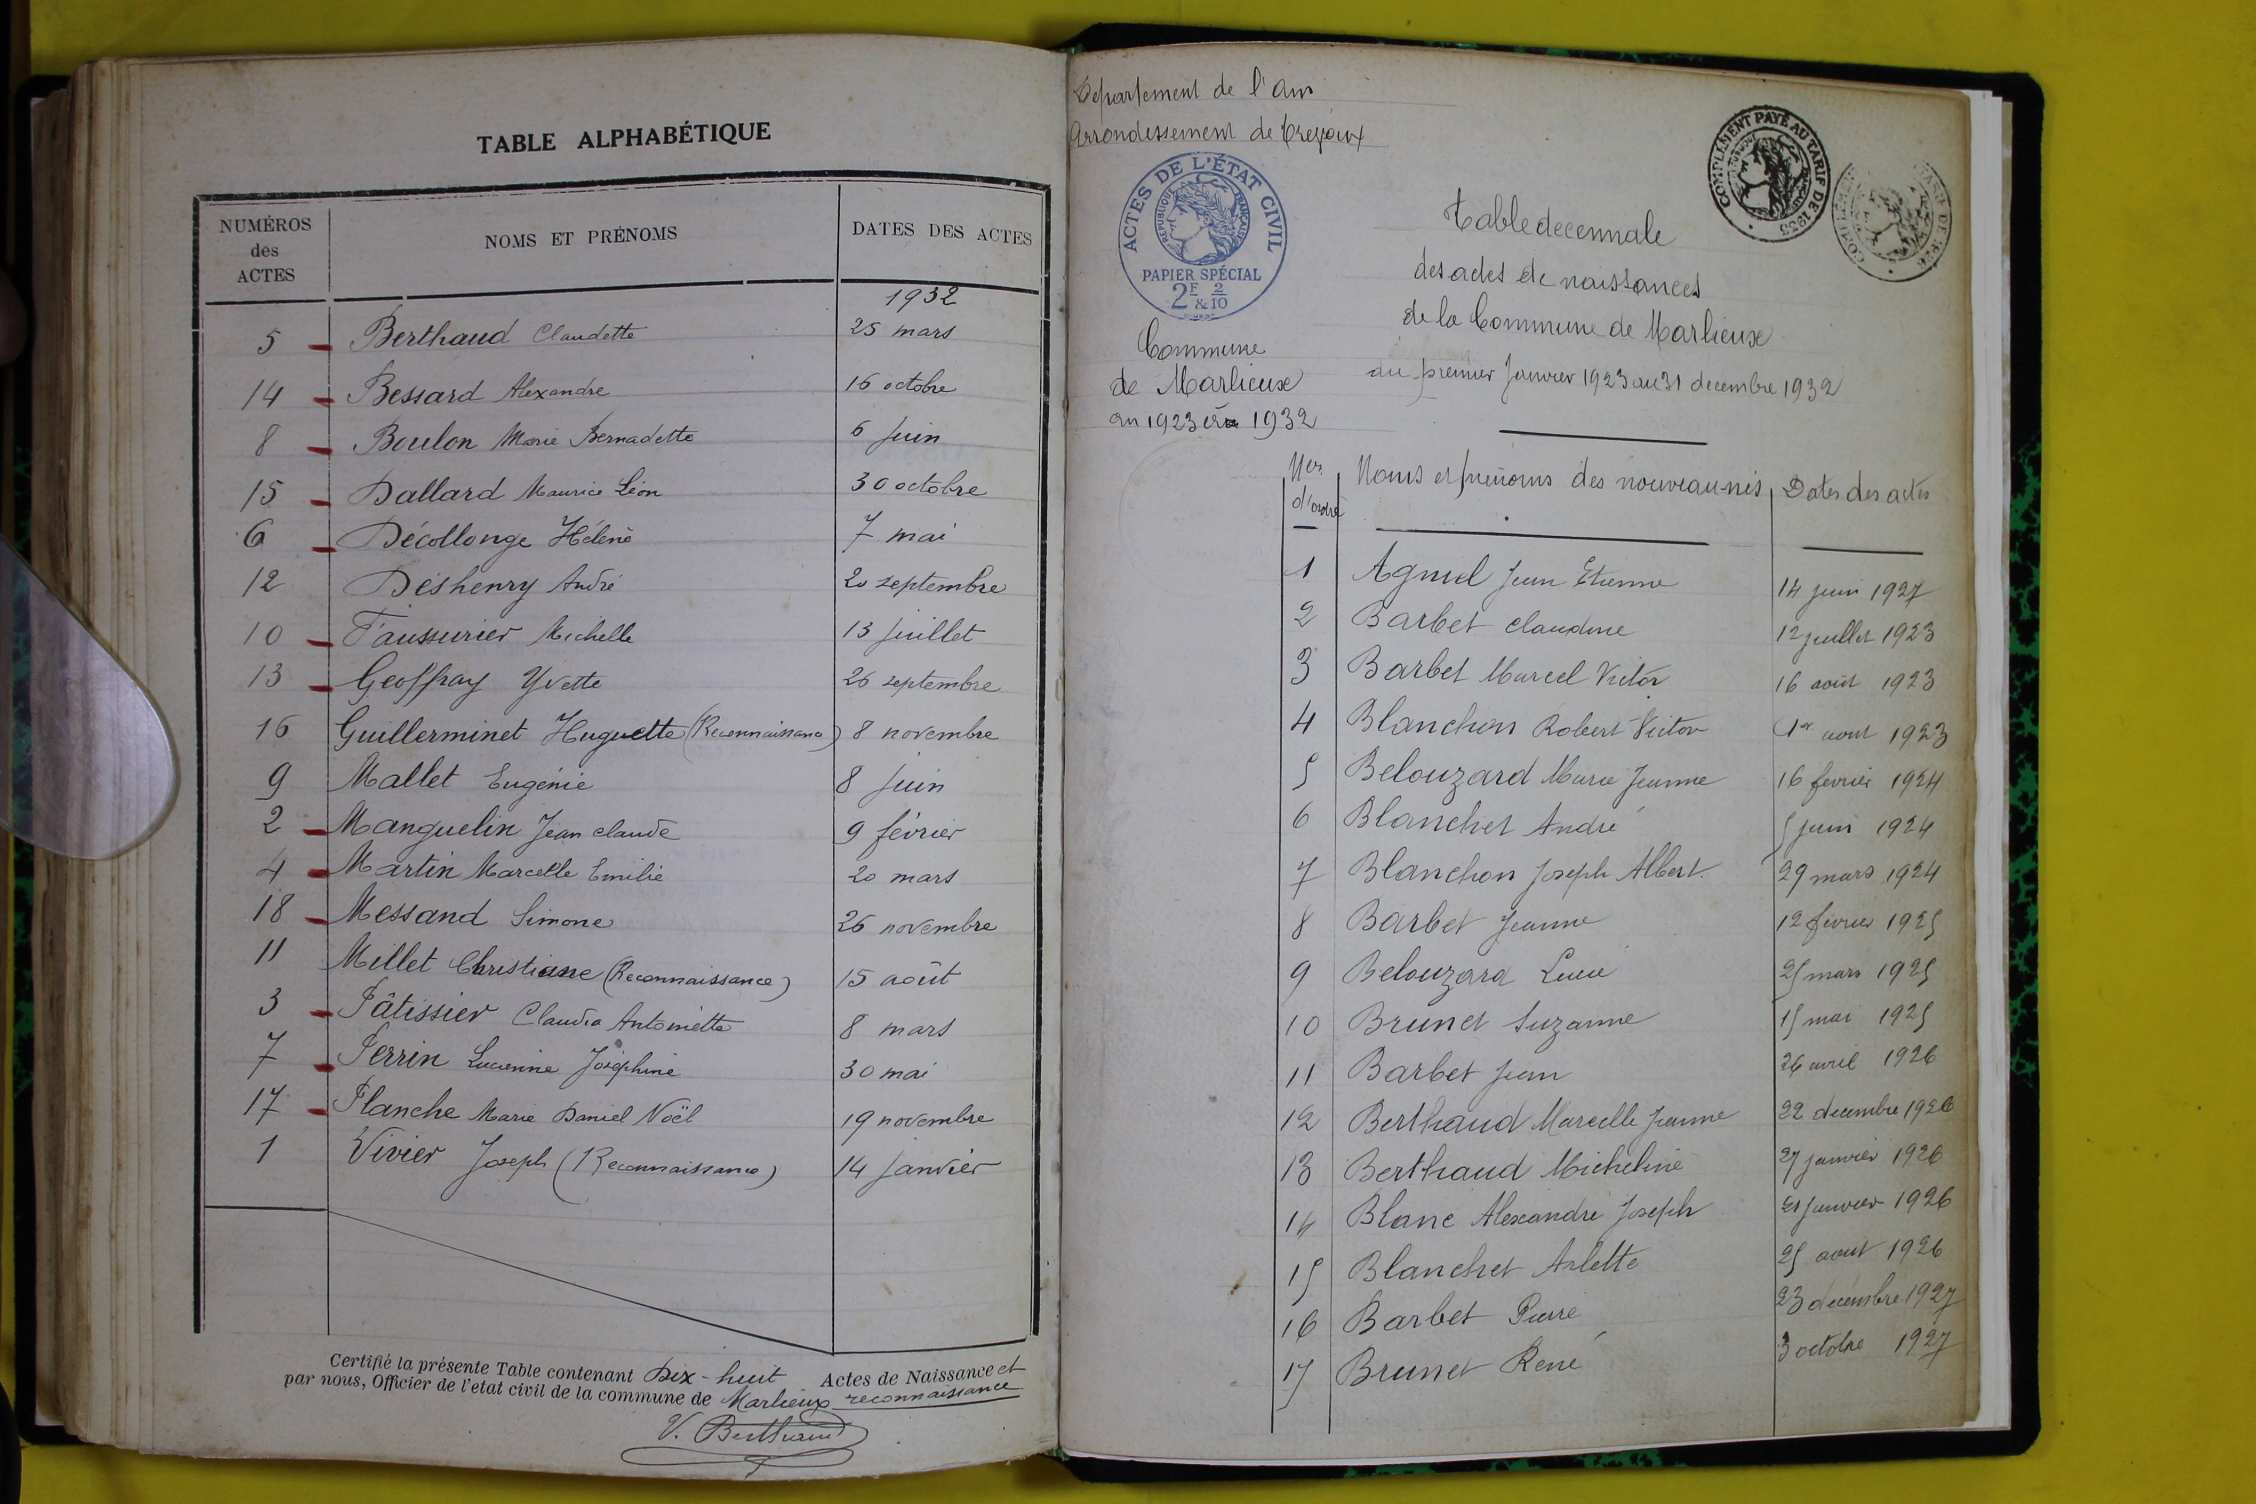 TABLE ALPHABÉTIQUE
NUMÉROS des ACTES NOMS ET PRÉNOMS DATES DES ACTES
1932
5 Berthaud Claudette 25 mars
14 Bessard Alexandre 16 octobre
8 Boulon Marie Bernadette 6 juin
15 Dallard Maurice Léon 30 octobre
6 Décollonge Hélène 7 mai
12 Déshenry André 20 septembre
10 Faussurier Michelle 13 juillet
13 Geoffray Yvette 26 septembre
16 Guillerminet Huguette (Reconnaissance) 8 novembre
9 Mallet Eugénie 8 juin
2 Manguelin Jean claude 9 février
4 Martin Marcelle Emilie 20 mars
18 Messand Simone 26 novembre
11 Millet Christiane (Reconnaissance) 15 août
3 Pâtissier Claudia Antoinette 8 mars
7 Perrin Lucienne Joséphine 30 mai
17 Planche Marie Daniel Noël 19 novembre
1 Vivier Joseph (Reconnaissance) 14 janvier
Certifié la présente Table contenant Dix-huit Actes de Naissance et
par nous, Officier de l'etat civil de la commune de Marlieux reconnaissance
V. Berthaud
Departement de l'ain
Arrondissement de Trevoux
ACTES DE L'ÉTAT CIVIL
RÉPUBLIQUE FRANÇAISE
PAPIER SPÉCIAL
2F & 2/10
COMPLÉMENT PAYÉ AU TARIF DE 1925
Commune
de Marlieux
an 1923 1932
Table decennale
des actes de naissances
de la Commune de Marlieux
du premier Janvier 1923 au 31 decembre 1932
Nos d'ordre Noms et prénoms des nouveau-nés Dates des actes
1 Agniel Jean Etienne 14 juin 1927
2 Barbet claudine 12 juillet 1923
3 Barbet Marcel Victor 16 août 1923
4 Blanchon Robert Victor 1er aout 1923
5 Belouzard Marie Jeanne 16 fevrier 1924
6 Blanchet André 5 juin 1924
7 Blanchon Joseph Albert 29 mars 1924
8 Barbet Jeanne 12 février 1925
9 Belouzard Lucie 25 mars 1925
10 Brunet Suzanne 15 mai 1925
11 Barbet Jean 26 avril 1926
12 Berthaud Marcelle Jeanne 22 decembre 1926
13 Berthaud Micheline 27 janvier 1926
14 Blanc Alexandre Joseph 21 janvier 1926
15 Blanchet Arlette 25 aout 1926
16 Barbet Pierre 23 decembre 1927
17 Brunet René 3 octobre 1927